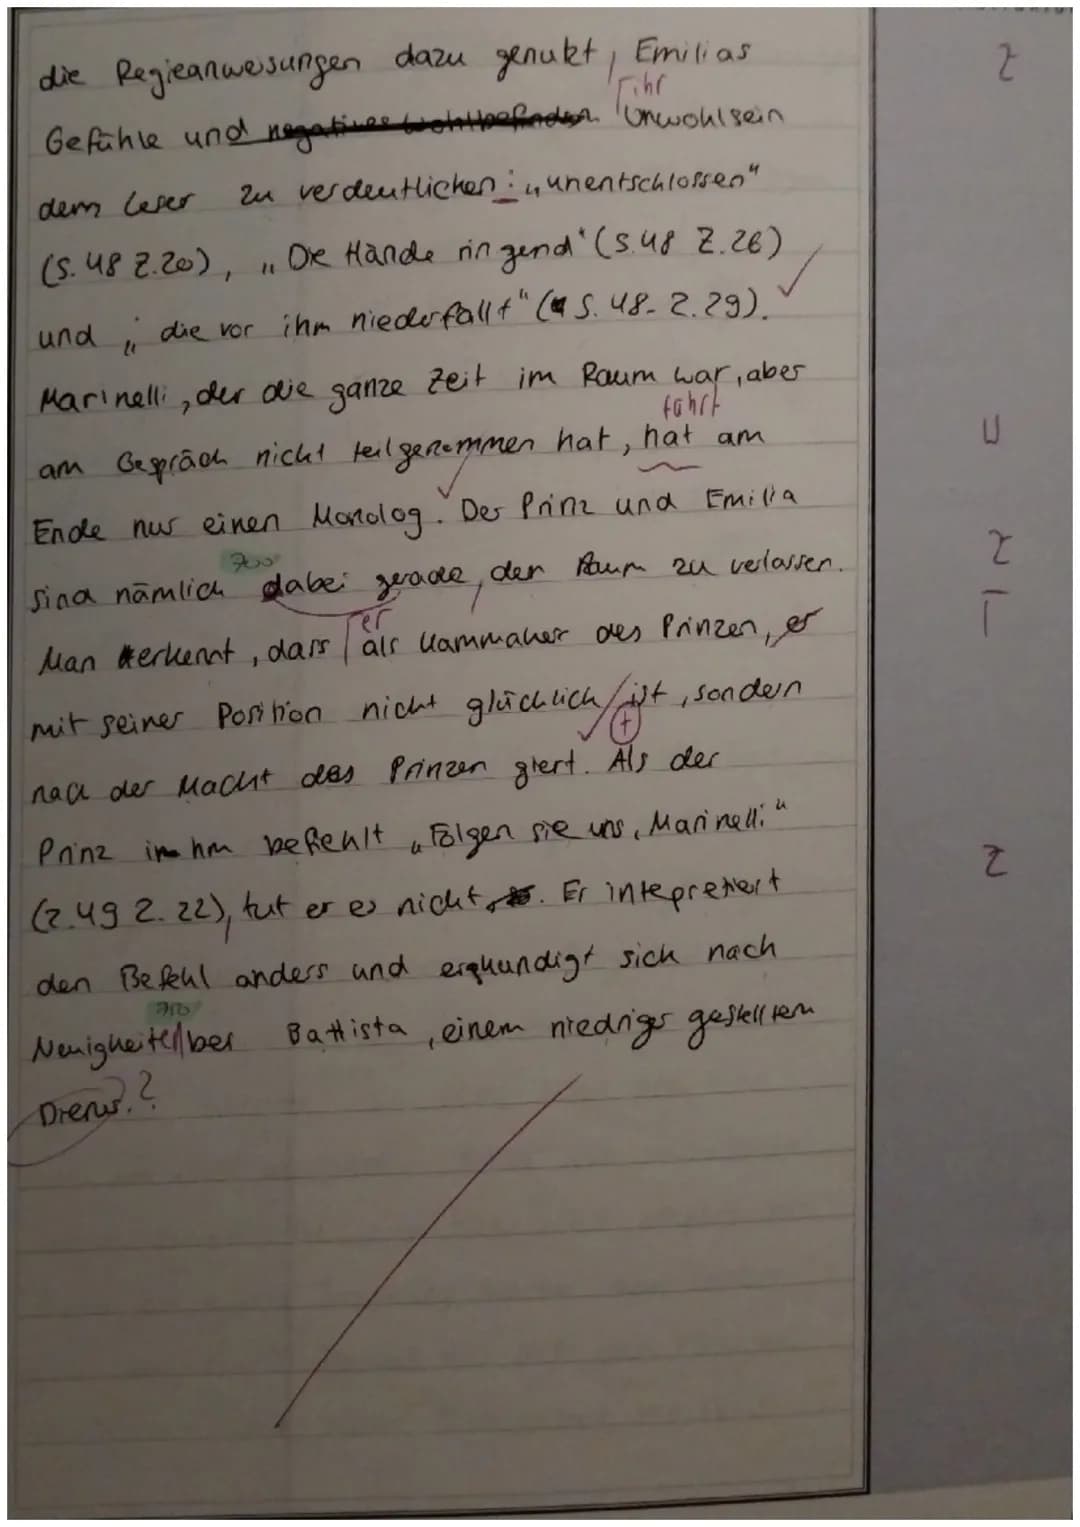 die Regieanweisungen dazu genutzt, Emilias
z
ihr
Gefühle und negatives Wohlbefinden Unwohlsein
dem Leser zu verdeutlichen: „unentschlossen"
(S. 48 Z.20), „Die Hände ringend" (S.48 Z.26)
und „die vor ihm niederfällt" (S. 48. Z.29).
Marinelli, der die ganze Zeit im Raum war, aber
führt
am Gespräch nicht teilgenommen hat, hat am
Ende nur einen Monolog. Der Prinz und Emilia
z
700
sind nämlich dabei gerade, den Raum zu verlassen.
er
Man erkennt, dass als Kammaherr des Prinzen, er
mit seiner Position nicht glücklich ist, sondern
+
nach der Macht des Prinzen giert. Als der
Prinz ihm befiehlt „Folgen sie uns, Marinelli"
z
(Z.49 Z. 22), tut er es nicht. Er intepretiert
den Befehl anders und erqkundigt sich nach
Neuigkeiten bei Battista, einem niedriger gestelltem
Diener.?